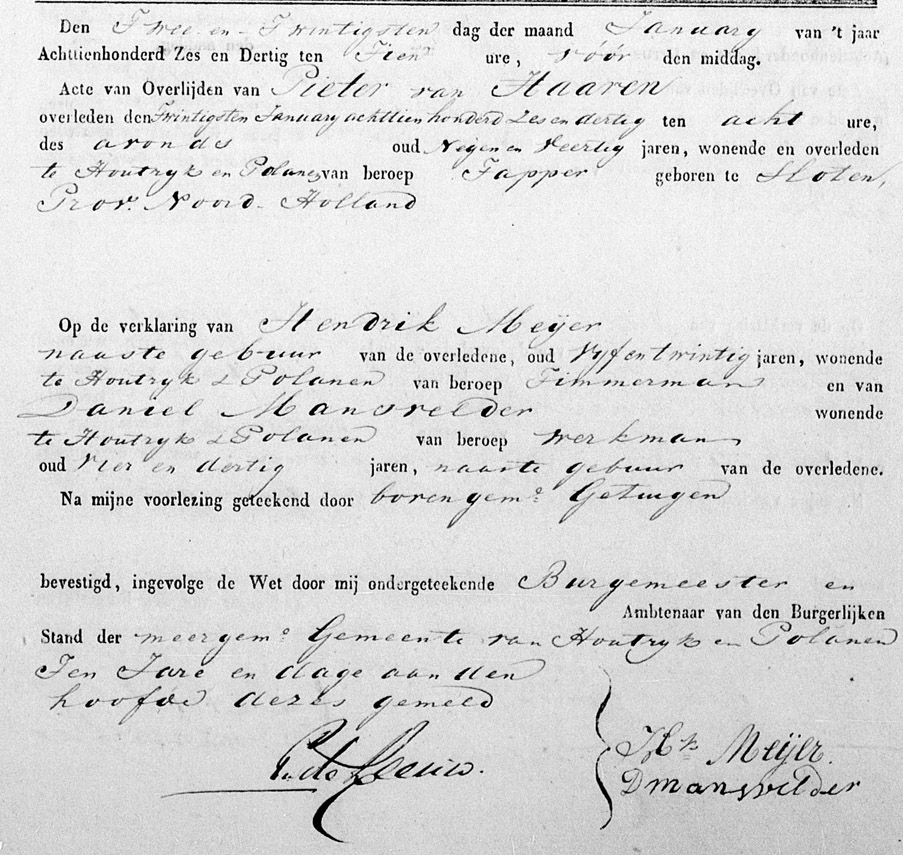 Den Twee en Twintigsten dag der maand January van 't jaar
Achttienhonderd Zes en Dertig ten Tien ure, voor den middag.
Acte van Overlijden van Pieter van Haaren
overleden den Twintigsten January achttienhonderd Zes en dertig ten acht ure,
des avonds oud Negen en Veertig jaren, wonende en overleden
te Houtryk en Polanen van beroep Tapper geboren te Sloten,
Prov. Noord-Holland
Op de verklaring van Hendrik Meÿer
naaste gebuur van de overledene, oud Vyf en twintig jaren, wonende
te Houtryk & Polanen van beroep Timmerman en van
Daniel Mansvelder wonende
te Houtryk & Polanen van beroep werkman
oud Vier en dertig jaren, naaste gebuur van de overledene.
Na mijne voorlezing geteekend door bovengemde Getuigen
bevestigd, ingevolge de Wet door mij ondergeteekende Burgemeester en
Ambtenaar van den Burgerlijken
Stand der meergemde Gemeente van Houtryk en Polanen
Ten Jare en dage aan den
hoofde dezes gemeld
de Leeuw.
Hk Meijer.
D mansvelder